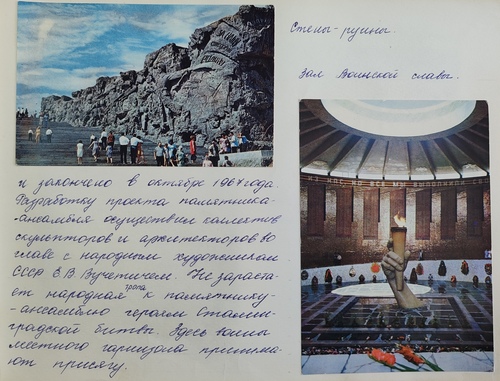 Стены-руины.
Зал Воинской славы.
и закончено в октябре 1967 года.
Разработку проекта памятника-
-ансамбля осуществил коллектив
скульпторов и архитекторов во
главе с народным художником
СССР Е.В. Вучетичем. Не зараста-
ет народная тропа к памятнику-
-ансамблю героям Сталин-
градской битвы. Здесь воины
местного гарнизона принима-
ют присягу.